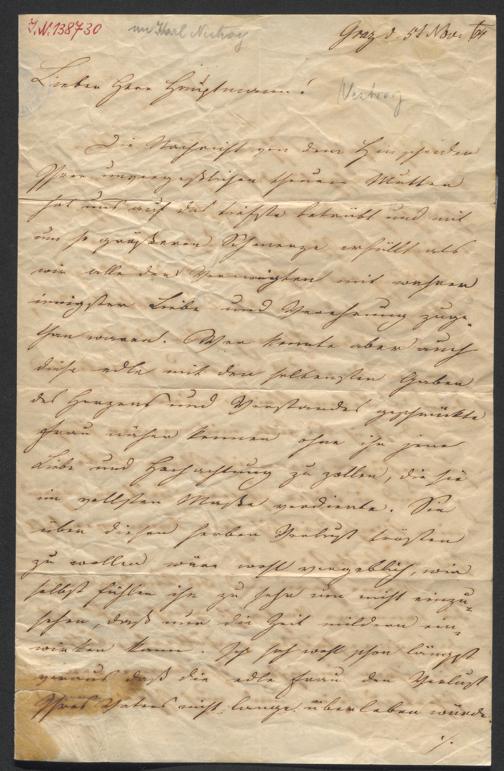 I.N. 138730
an Karl Nestroy
Graz d. 5t Nov. 64
Lieber Herr Hauptmann!
Nestroy
Die Nachricht von dem Hinscheiden
Ihrer unvergeßlichen theuern Mutter
hat uns auf das tiefste betrübt und mit
um so größerem Schmerze erfüllt als
wir alle der Verewigten mit wahrer
innigster Liebe und Verehrung zuge-
than waren. Wer konnte aber auch
diese edle mit den seltensten Gaben
des Herzens und Verstandes geschmückte
Frau näher kennen ohne ihr jene
Liebe und Hochachtung zu zollen, die sie
im vollsten Maße verdiente. Sie
über diesen herben Verlust trösten
zu wollen wäre wohl vergeblich, wir
selbst fühlen ihn zu sehr um nicht einzu-
sehen, daß nur die Zeit mildern ein-
wirken kann. Ich sah wohl schon längst
voraus daß die edle Frau den Verlust
Ihres Vaters nicht lange überleben würde.
./.